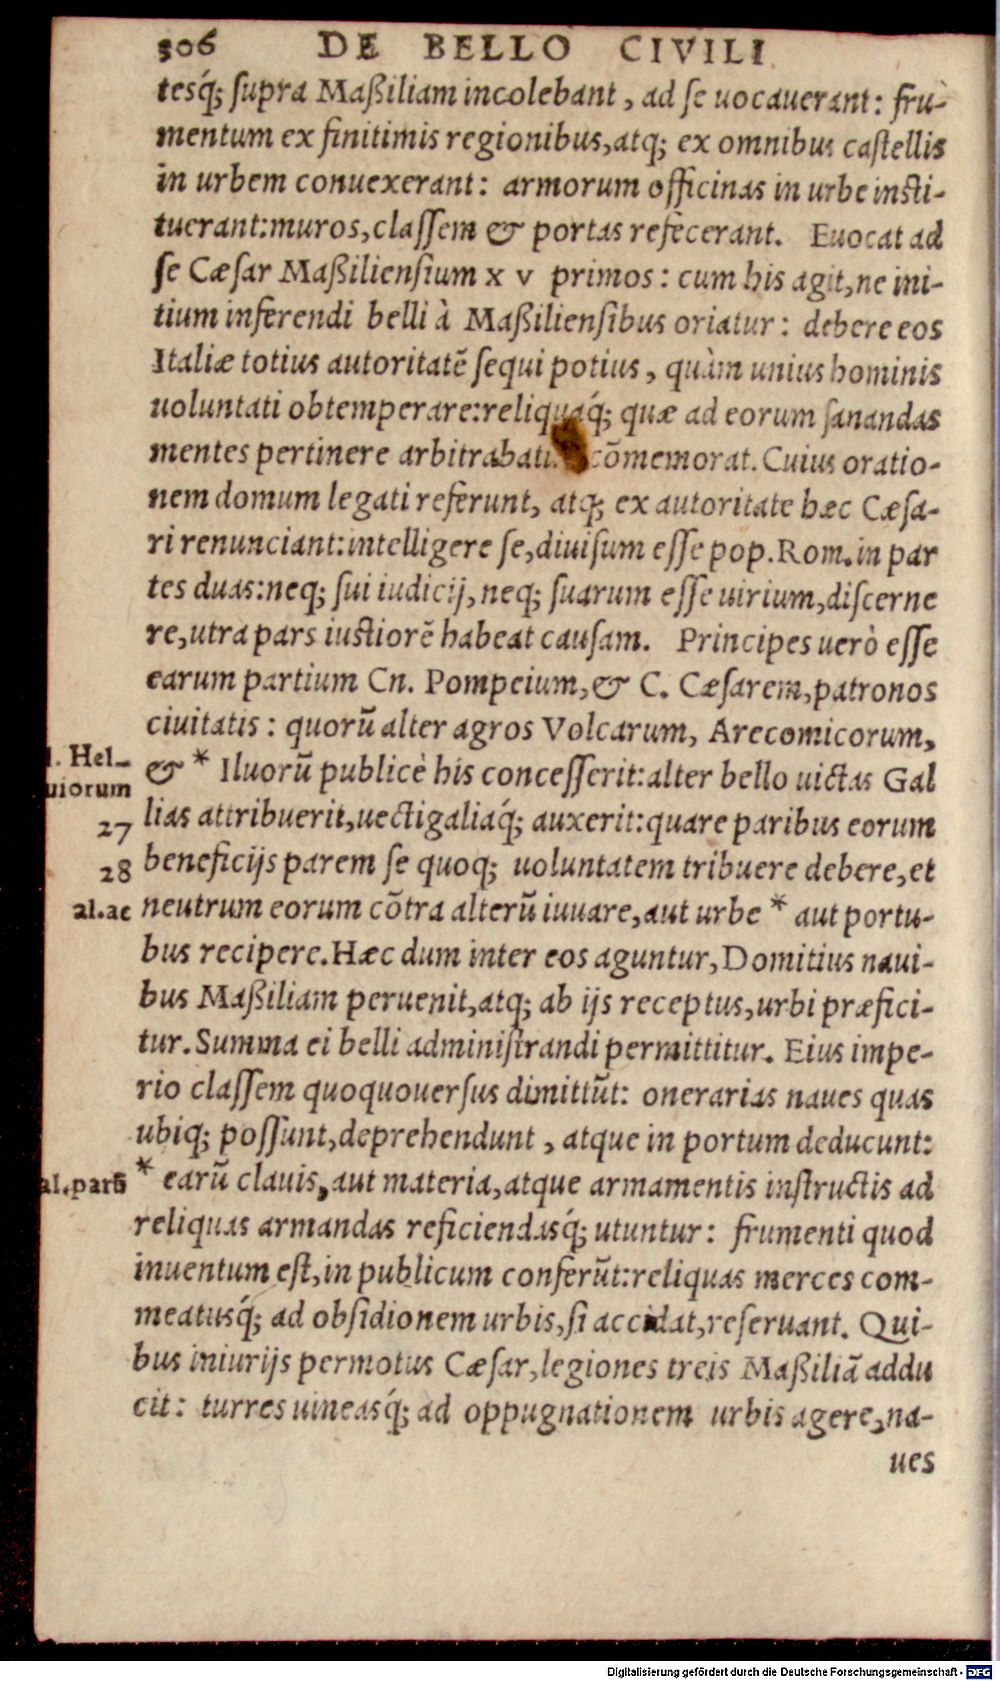 306 DE BELLO CIVILI
tesq́; ſupra Maßiliam incolebant, ad ſe uocauerant: fru-
mentum ex finitimis regionibus, atq; ex omnibus caſtellis
in urbem conuexerant: armorum officinas in urbe inſti-
tuerant: muros, claſſem & portas refecerant. Euocat ad
ſe Cæſar Maßilienſium x v primos: cum his agit, ne ini-
tium inferendi belli à Maßilienſibus oriatur: debere eos
Italiæ totius autoritatē ſequi potius, quàm unius hominis
uoluntati obtemperare: reliquaq́; quæ ad eorum ſanandas
mentes pertinere arbitrabatu cōmemorat. Cuius oratio-
nem domum legati referunt, atq; ex autoritate hæc Cæſa-
ri renunciant: intelligere ſe, diuiſum eſſe pop. Rom. in par
tes duas: neq; ſui iudicij, neq; ſuarum eſſe uirium, diſcerne
re, utra pars iuſtiorē habeat cauſam. Principes uerò eſſe
earum partium Cn. Pompeium, & C. Cæſarem, patronos
ciuitatis: quorū alter agros Volcarum, Arecomicorum,
l. Hel-
uiorum
& * Iluorū publicè his conceſſerit: alter bello uictas Gal
27 lias attribuerit, uectigaliaq́; auxerit: quare paribus eorum
28 beneficijs parem ſe quoq; uoluntatem tribuere debere, et
al. ac neutrum eorum cōtra alterū iuuare, aut urbe * aut portu-
bus recipere. Hæc dum inter eos aguntur, Domitius naui-
bus Maßiliam peruenit, atq; ab ijs receptus, urbi præfici-
tur. Summa ei belli adminiſtrandi permittitur. Eius impe-
rio claſſem quoquouerſus dimittūt: onerarias naues quas
ubiq; poſſunt, deprehendunt, atque in portum deducunt:
al. parū * earū clauis, aut materia, atque armamentis inſtructis ad
reliquas armandas reficiendasq́; utuntur: frumenti quod
inuentum eſt, in publicum conferūt: reliquas merces com-
meatusq́; ad obſidionem urbis, ſi accidat, reſeruant. Qui-
bus iniurijs permotus Cæſar, legiones treis Maßiliā addu
cit: turres uineasq́; ad oppugnationem urbis agere, na-
ues
Digitalisierung gefördert durch die Deutsche Forschungsgemeinschaft - DFG